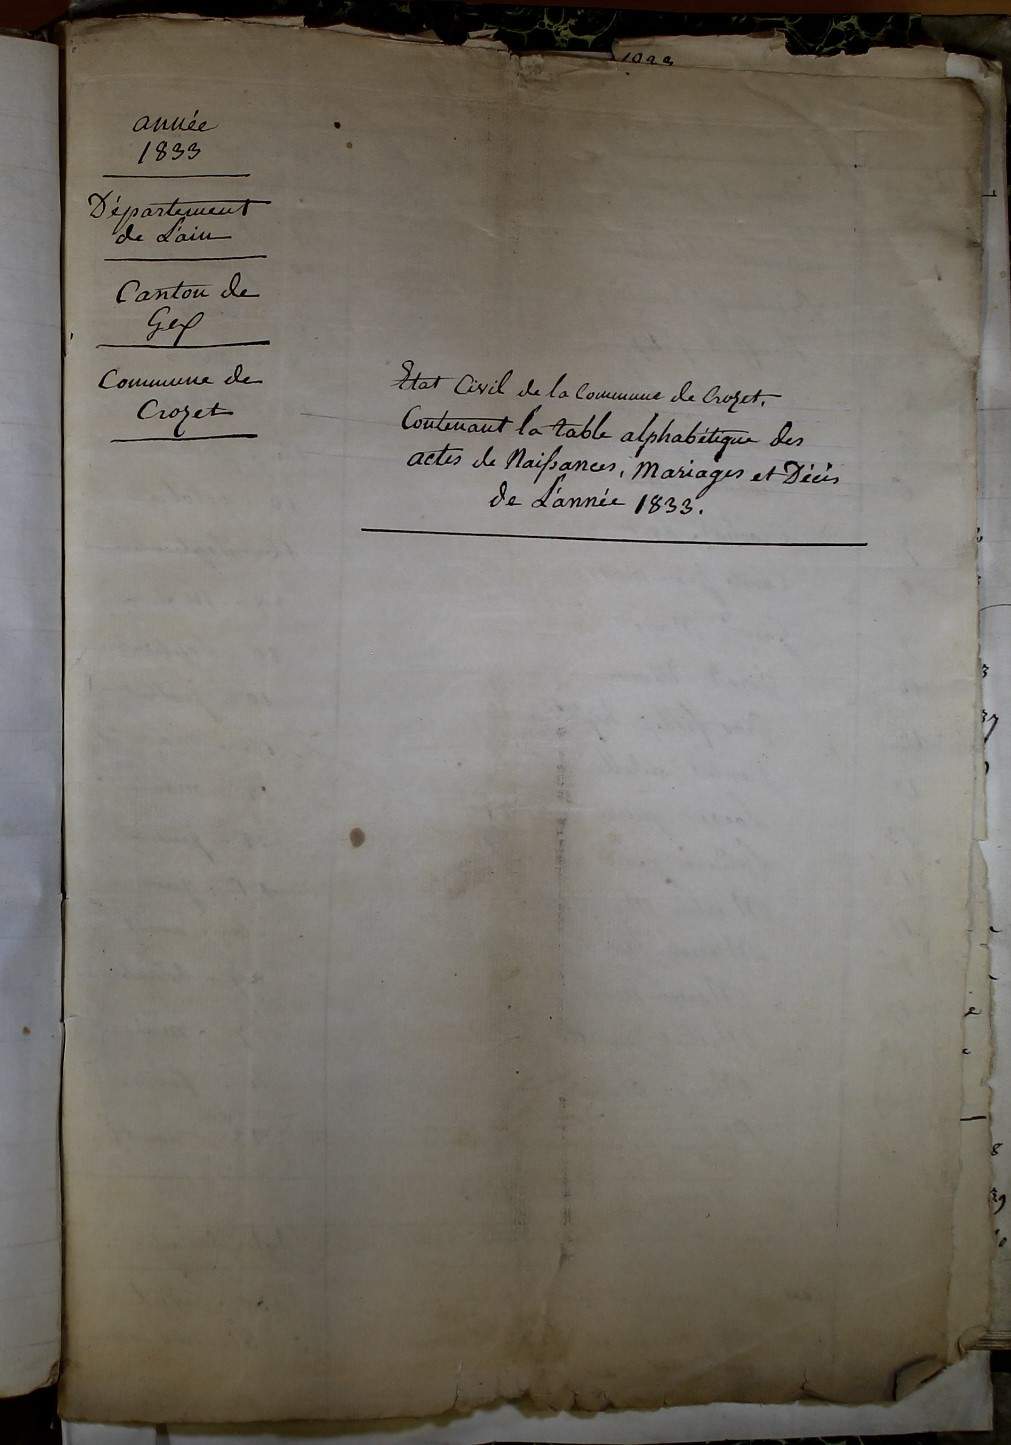 année
1833
Département
de L'ain
Canton de
Gex
Commune de
Crozet
Etat Civil de la Commune de Crozet.
Contenant la table alphabétique des
actes de Naissances, Mariages et Décès
de L'année 1833.